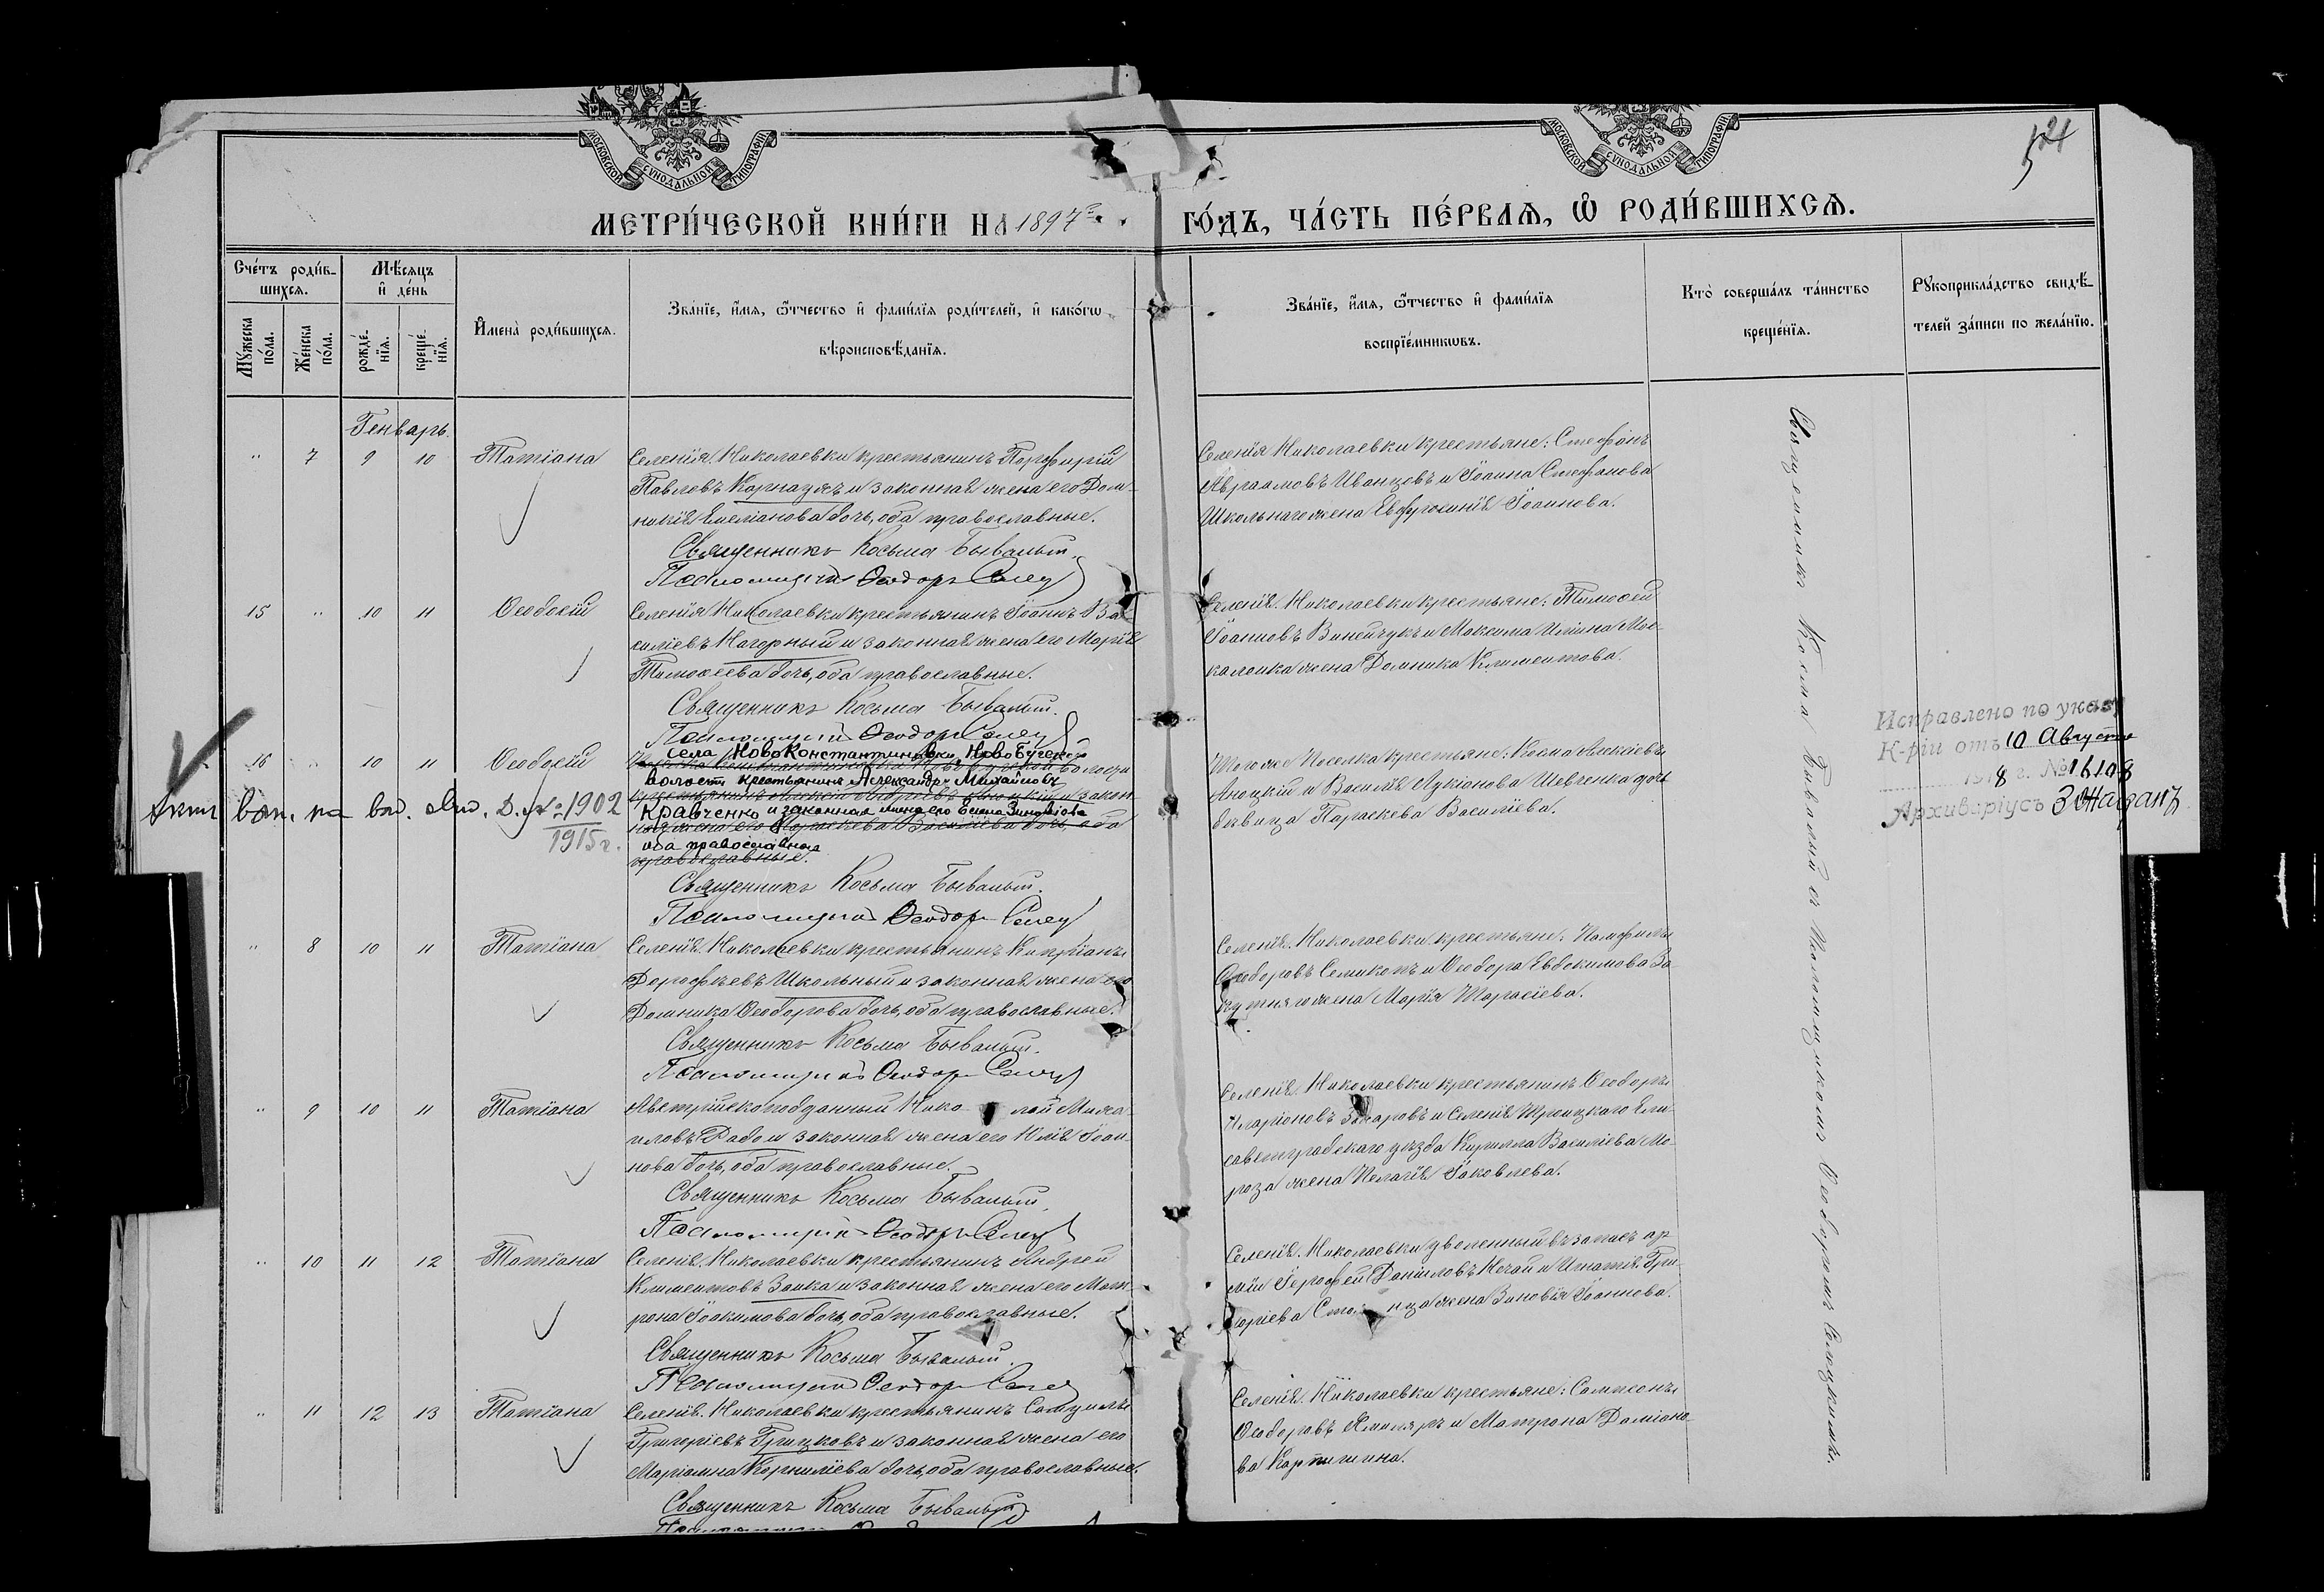 МОСКОВСКОЙ СУНОДАЛЬНОЙ ТИПОГРАФИИ
МОСКОВСКОЙ СУНОДАЛЬНОЙ ТИПОГРАФИИ
521
МЕТРИ́ЧЕСКОЙ КНИ́ГИ НА 1897й
ГО́ДЪ, ЧА́СТЬ ПЕ́РВАѦ, Ѡ҆ РОДИ́ВШИХСѦ.
Сче́тъ роди́в-
шихсѧ.
Мꙋ́жеска по́ла.
Же́нска по́ла.
Мѣ́сѧцъ
и҆ де́нь
рожде́-
нїѧ.
креще́-
нїѧ.
И҆мена̀ роди́вшихсѧ.
Зва́нїе, и҆́мѧ, ѻ҆́тчество и҆ фами́лїѧ роди́телей, и҆ како́гѡ
вѣроисповѣ́данїѧ.
Зва́нїе, и҆́мѧ, ѻ҆́тчество и҆ фами́лїѧ
воспрїе́мникѡвъ.
Кто̀ соверша́лъ та́инство
креще́нїѧ.
Рꙋкоприкла́дство свидѣ́-
телей за́писи по жела́нїю.
Генварь.
" 7 9 10 Татіана
Селенія Николаевки крестьянинъ Порфирій
Павловъ Карнаухъ и законная жена его Дом-
никія Емеліанова дочь, оба православные.
Священникъ Косьма Бывалый.
Псаломщикъ Ѳеодоръ
Селенія Николаевки крестьяне: Стефанъ
Авраамовъ Иванцовъ и Іоанна Стефанова
Школьнаго жена Евфросинія Іоаннова.
15 " 10 11 Ѳеодосій
Селенія Николаевки крестьянинъ Іоаннъ Ва-
силіевъ Нагорный и законная жена его Марія
Тимоѳеева дочь, оба православные.
Священникъ Косьма Бывалый.
Псаломщикъ Ѳеодоръ
Селенія Николаевки крестьяне: Тимоѳей
Іоанновъ Винничукъ и Максима Иліина Мос-
каленка жена Домника Климентова.
16 " 10 11 Ѳеодосій
села НовоКонстантиновки, НовоБугской
волости крестьянинъ Александръ Михайловъ
Кравченко и законная жена его Елена Зиновіева
оба православные
православные.
Священникъ Косьма Бывалый.
Псаломщикъ Ѳеодоръ
Тогоже поселка крестьяне: Косма Алексіевъ
и Василія Лукіанова Шевченка дочь
дѣвица Параскева Василіева.
№ 1902
1915 г.
Исправлено по указу
К-ріи отъ 10 Августа
1918 г. № 16108
Архиваріусъ
" 8 10 11 Татіана
Селенія Николаевки крестьянинъ Кипріанъ
Дороѳеевъ Школьный и законная жена его
Домника Ѳеодорова дочь, оба православные.
Священникъ Косьма Бывалый.
Псаломщикъ Ѳеодоръ
Селенія Николаевки крестьяне: Памфилъ
Ѳеодоровъ Семикопъ и Ѳеодора Евдокимова За-
жена Марія Тарасіева.
" 9 10 11 Татіана
Австрійскоподданный Николай Миха-
иловъ и законная жена его Юлія Іоан-
нова дочь, оба православные.
Священникъ Косьма Бывалый.
Псаломщикъ Ѳеодоръ
Селенія Николаевки крестьянинъ Ѳеодоръ
Иларіоновъ Захаровъ и селенія Троицкаго Ели-
саветградскаго уѣзда Кирилла Василіева Мо-
роза жена Пелагія Іаковлева.
" 10 11 12 Татіана
Селенія Николаевки крестьянинъ Андрей
Климентовъ Заика и законная жена его Мат-
рона Іоакимова дочь, оба православные.
Священникъ Косьма Бывалый.
Псаломщикъ Ѳеодоръ
Селенія Николаевки уволенный въ запасъ ар-
міи Іероѳей Даніиловъ Нечай и Игнатія Гри-
горіева жена Зиновія Іоаннова.
" 11 12 13 Татіана
Селенія Николаевки крестьянинъ Самуилъ
Григоріевъ Грицковъ и законная жена его
Маріамна Корниліева дочь, оба православные.
Священникъ Косьма Бывалый.
Селенія Николаевки крестьяне: Сампсонъ
Ѳеодоровъ и Матрона Даміано-
ва
Священникъ Косма Бывалый съ Псаломщикомъ Ѳеодоромъ